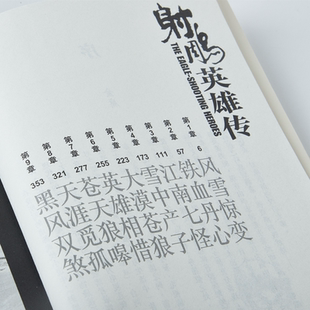 射雕英雄传
THE EAGLE-SHOOTING HEROES
第1章 6 风雪惊变
第2章 57 铁血丹心
第3章 111 江南七怪
第4章 173 雪中产子
第5章 223 大漠苍狼
第6章 255 英雄相惜
第7章 277 苍天狼嗥
第8章 321 天涯觅孤
第9章 353 黑风双煞